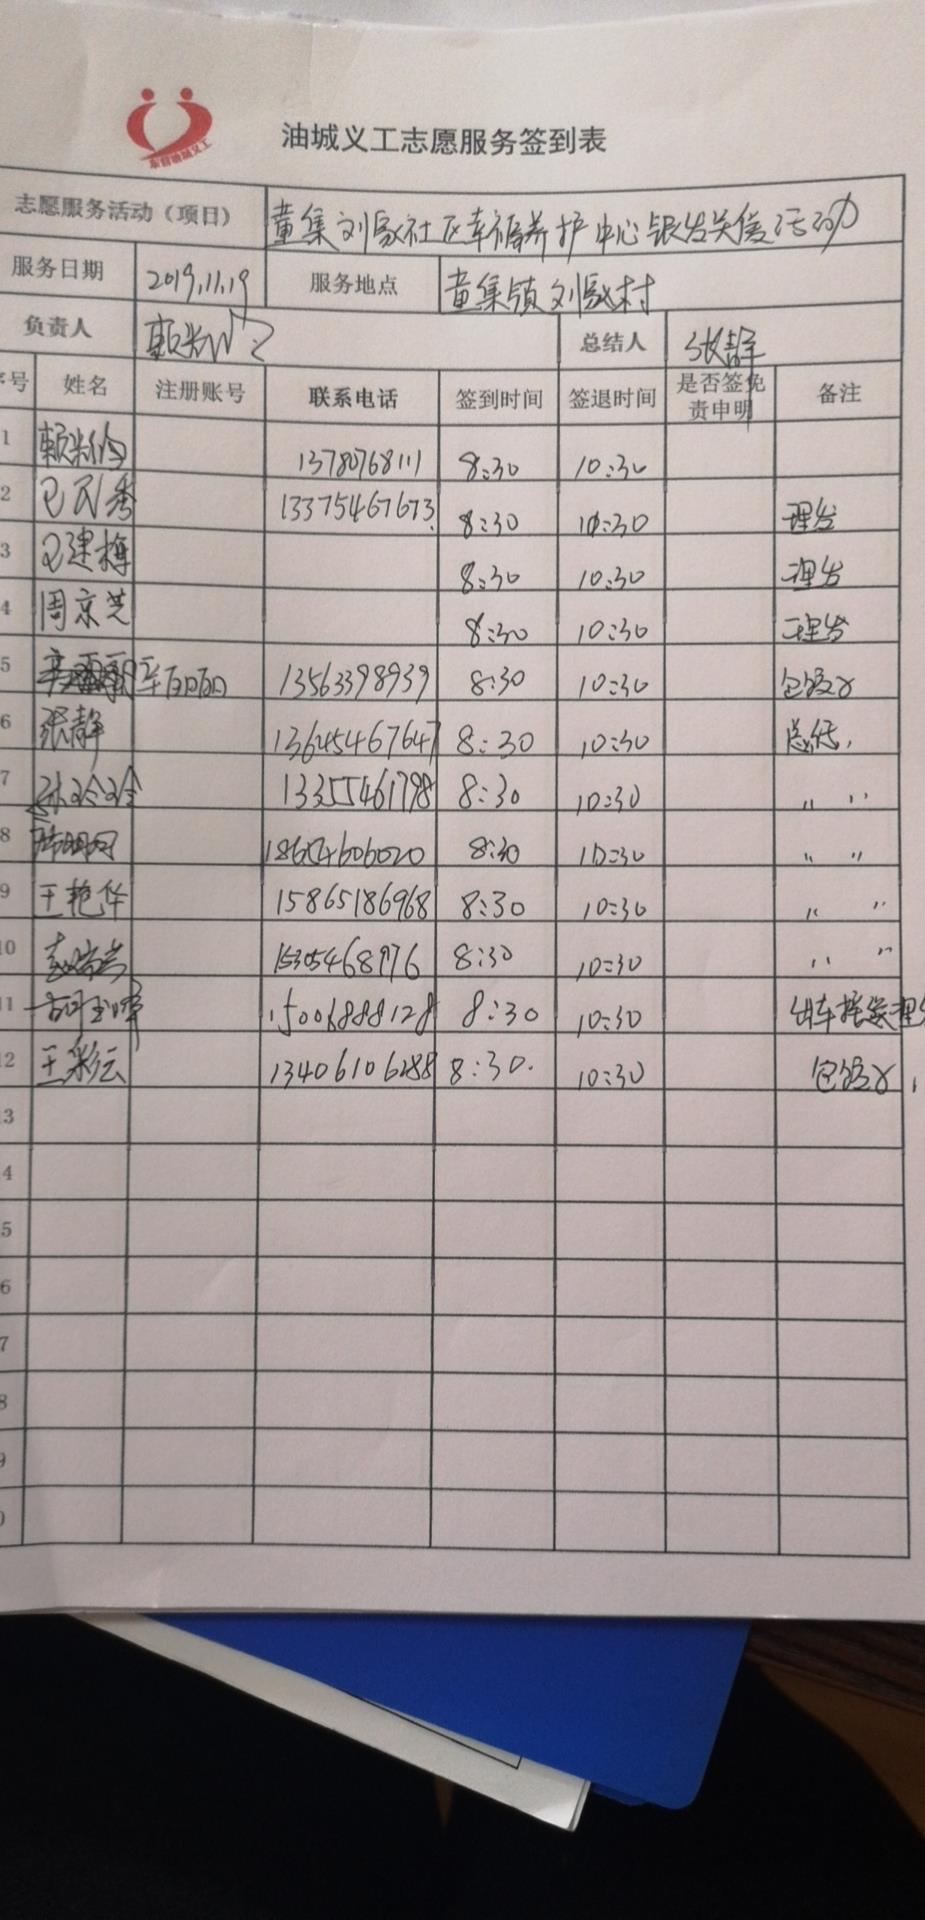 东营油城义工
油城义工志愿服务签到表
志愿服务活动（项目） 董集刘家社区幸福养护中心银发关爱活动
服务日期 2019.11.19 服务地点 董集镇刘家村
负责人 总结人 张静
序号 姓名 注册账号 联系电话 签到时间 签退时间 是否签免责申明 备注
1 13780768111 8:30 10:30
2 13375467673 8:30 10:30 理发
3 8:30 10:30 理发
4 周京芝 8:30 10:30 理发
5 13563398939 8:30 10:30 包饺子
6 张静 13645467647 8:30 10:30 总结
7 孙玲玲 13355461798 8:30 10:30 〃 〃
8 8:30 10:30 〃 〃
9 王艳华 15865186968 8:30 10:30 〃 〃
10 15305468976 8:30 10:30 〃 〃
11 15006888128 8:30 10:30 出车接送理发
12 王彩云 13406106288 8:30 10:30 包饺子
3
4
5
6
7
8
9
0